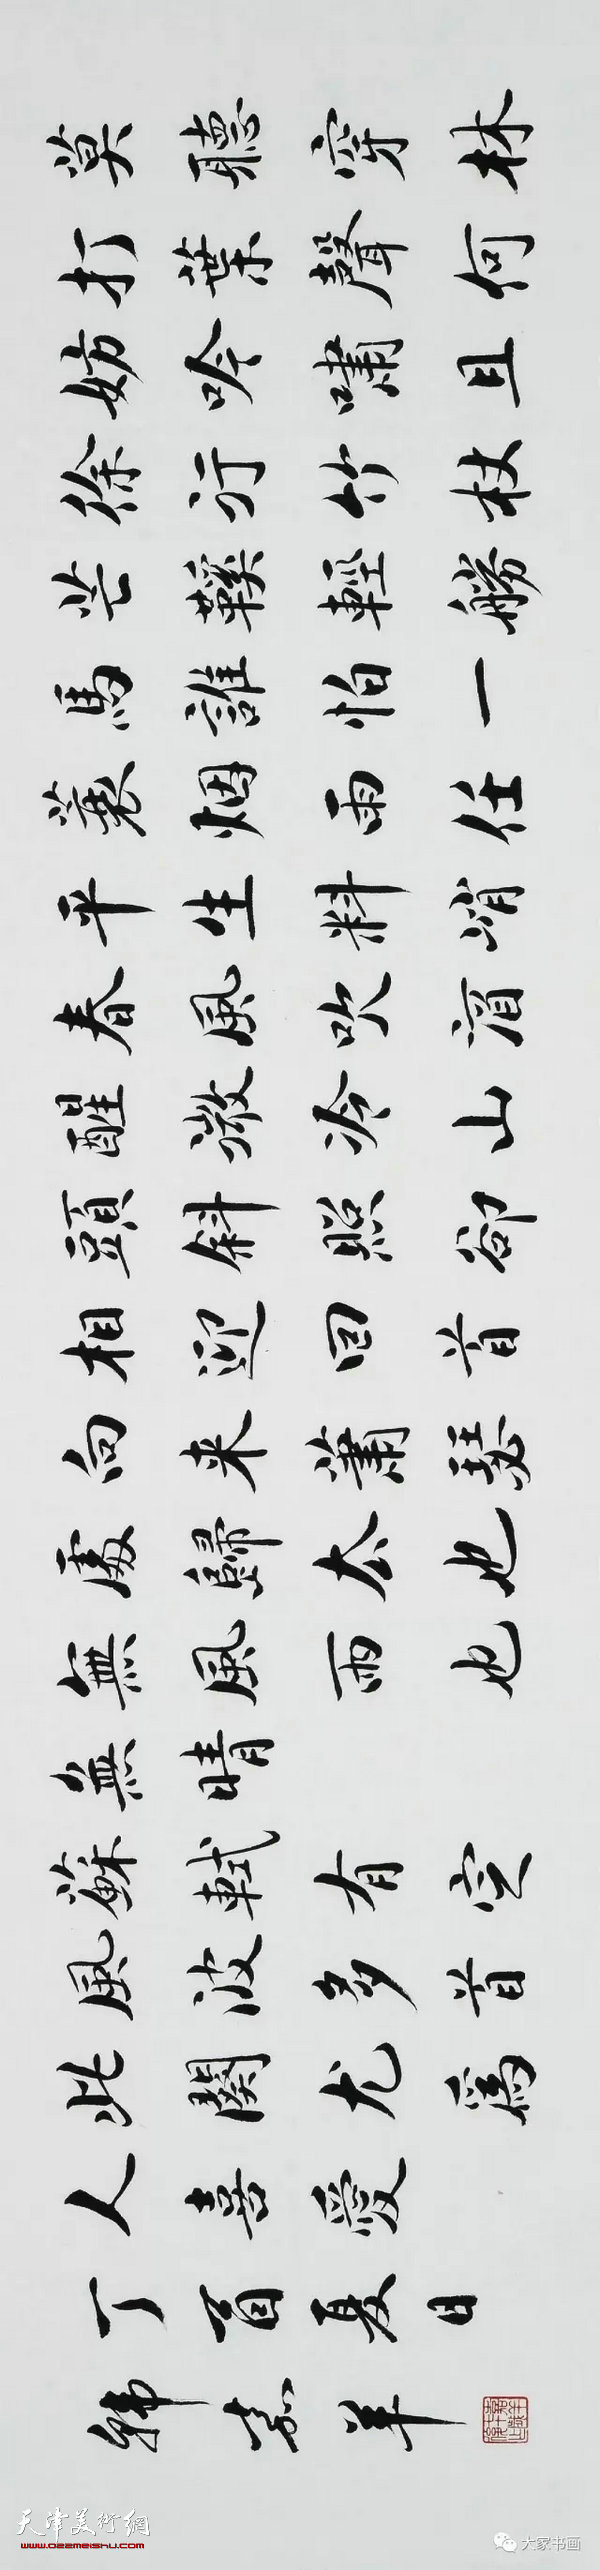 莫聽穿林
打葉聲何
妨吟嘯且
徐行竹杖
芒鞵輕勝
馬誰怕一
蓑烟雨任
平生料峭
春風吹酒
醒微冷山
頭斜照卻
相迎回首
向来蕭瑟
處歸去也
無風雨也
無晴
蘇軾有定
風波多首
此闋尤為
人喜愛
丁酉夏日
韩嘉羊
天津美術網
www.022meishu.com
大家书画